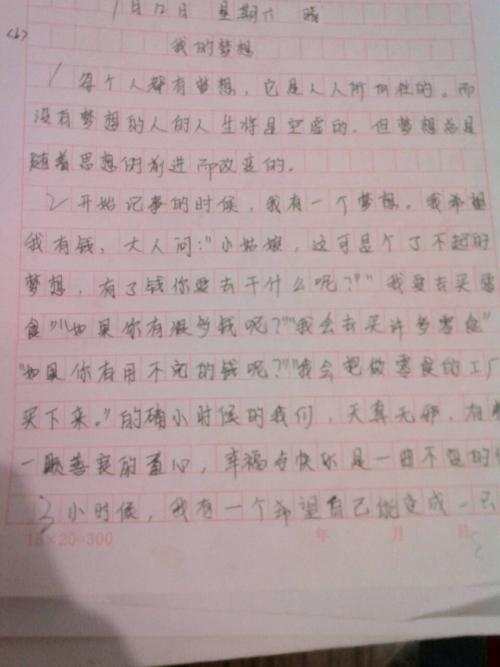 1月12日 星期六 晴
<6>
我的梦想
1 每个人都有梦想，它是人人所向往的。而
没有梦想的人的人生将是空虚的。但梦想总是
随着思想的前进而改变的。
2 开始记事的时候，我有一个梦想。我希望
我有钱，大人问:"小姑娘，这可是个了不起的
梦想，有了钱你要去干什么呢?""我要去买零
食""如果你有很多钱呢?""我会去买许多零食"
"如果你有用不完的钱呢?""我会把做零食的工厂
买下来。"的确小时候的我们，天真无邪，有着
一颗善良的童心，幸福与快乐是一曲不老的
3 小时候，我有一个希望自己能变成一只
15×20=300
年 月 日